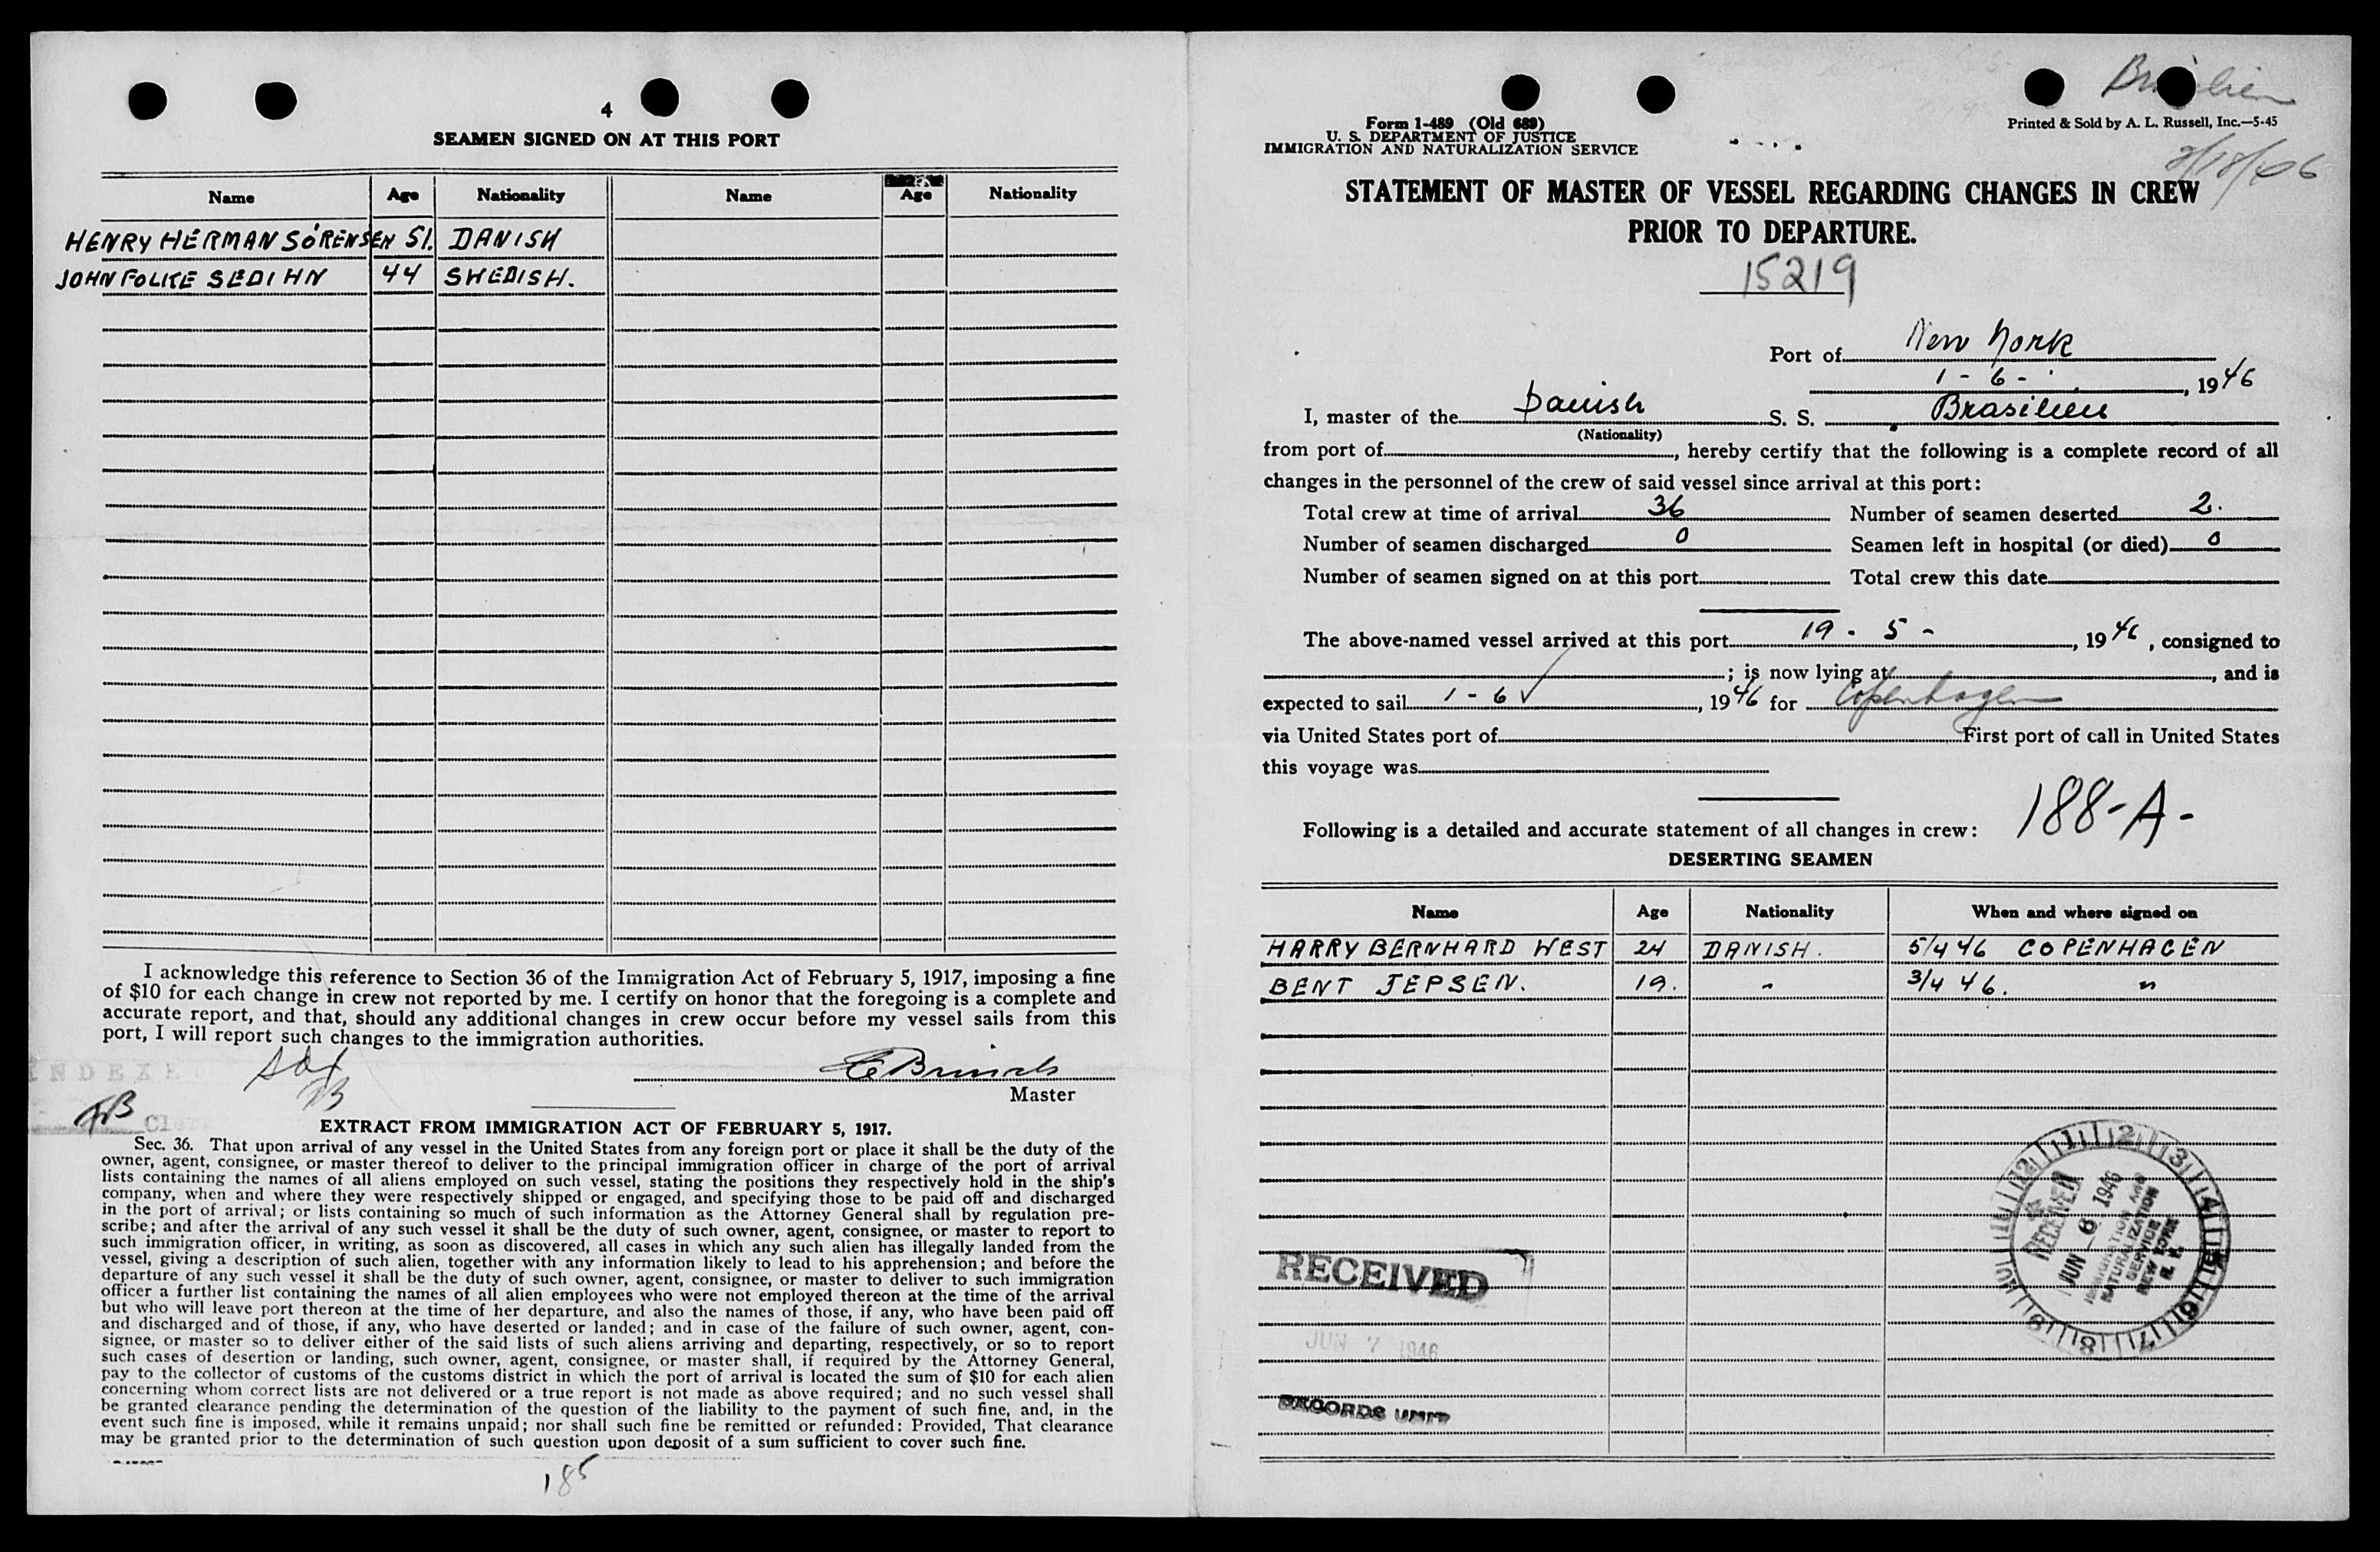 4
SEAMEN SIGNED ON AT THIS PORT
Name Age Nationality Name Age Nationality
HENRY HERMAN SÓRENSEN 51. DANISH
JOHN FOLKE SEDIHN 44 SWEDISH.
I acknowledge this reference to Section 36 of the Immigration Act of February 5, 1917, imposing a fine
of $10 for each change in crew not reported by me. I certify on honor that the foregoing is a complete and
accurate report, and that, should any additional changes in crew occur before my vessel sails from this
port, I will report such changes to the immigration authorities.
Master
EXTRACT FROM IMMIGRATION ACT OF FEBRUARY 5, 1917.
Sec. 36. That upon arrival of any vessel in the United States from any foreign port or place it shall be the duty of the
owner, agent, consignee, or master thereof to deliver to the principal immigration officer in charge of the port of arrival
lists containing the names of all aliens employed on such vessel, stating the positions they respectively hold in the ship's
company, when and where they were respectively shipped or engaged, and specifying those to be paid off and discharged
in the port of arrival; or lists containing so much of such information as the Attorney General shall by regulation pre-
scribe; and after the arrival of any such vessel it shall be the duty of such owner, agent, consignee, or master to report to
such immigration officer, in writing, as soon as discovered, all cases in which any such alien has illegally landed from the
vessel, giving a description of such alien, together with any information likely to lead to his apprehension; and before the
departure of any such vessel it shall be the duty of such owner, agent, consignee, or master to deliver to such immigration
officer a further list containing the names of all alien employees who were not employed thereon at the time of the arrival
but who will leave port thereon at the time of her departure, and also the names of those, if any, who have been paid off
and discharged and of those, if any, who have deserted or landed; and in case of the failure of such owner, agent, con-
signee, or master so to deliver either of the said lists of such aliens arriving and departing, respectively, or so to report
such cases of desertion or landing, such owner, agent, consignee, or master shall, if required by the Attorney General,
pay to the collector of customs of the customs district in which the port of arrival is located the sum of $10 for each alien
concerning whom correct lists are not delivered or a true report is not made as above required; and no such vessel shall
be granted clearance pending the determination of the question of the liability to the payment of such fine, and, in the
event such fine is imposed, while it remains unpaid; nor shall such fine be remitted or refunded: Provided, That clearance
may be granted prior to the determination of such question upon deposit of a sum sufficient to cover such fine.
185
Form 1-489 (Old 689)
U. S. DEPARTMENT OF JUSTICE
IMMIGRATION AND NATURALIZATION SERVICE
Printed & Sold by A. L. Russell, Inc.—5-45
STATEMENT OF MASTER OF VESSEL REGARDING CHANGES IN CREW
PRIOR TO DEPARTURE.
15219
Port of New York
1 - 6 - , 1946
I, master of the Danish S. S. Brasilien
(Nationality)
from port of , hereby certify that the following is a complete record of all
changes in the personnel of the crew of said vessel since arrival at this port:
Total crew at time of arrival 36 Number of seamen deserted 2.
Number of seamen discharged 0 Seamen left in hospital (or died) 0
Number of seamen signed on at this port Total crew this date
The above-named vessel arrived at this port 19 - 5 - , 1946 , consigned to
; is now lying at , and is
expected to sail 1 - 6 √ , 1946 for Copenhagen
via United States port of First port of call in United States
this voyage was
188-A-
Following is a detailed and accurate statement of all changes in crew:
DESERTING SEAMEN
Name Age Nationality When and where signed on
HARRY BERNHARD WEST 24 DANISH. 5/4 46 COPENHAGEN
BENT JEPSEN. 19. " 3/4 46. "
RECEIVED
JUN 7 1946
RECORDS UNIT
RECEIVED
JUN 6 1946
IMMIGRATION AND
NATURALIZATION
SERVICE
NEW YORK
N. Y.